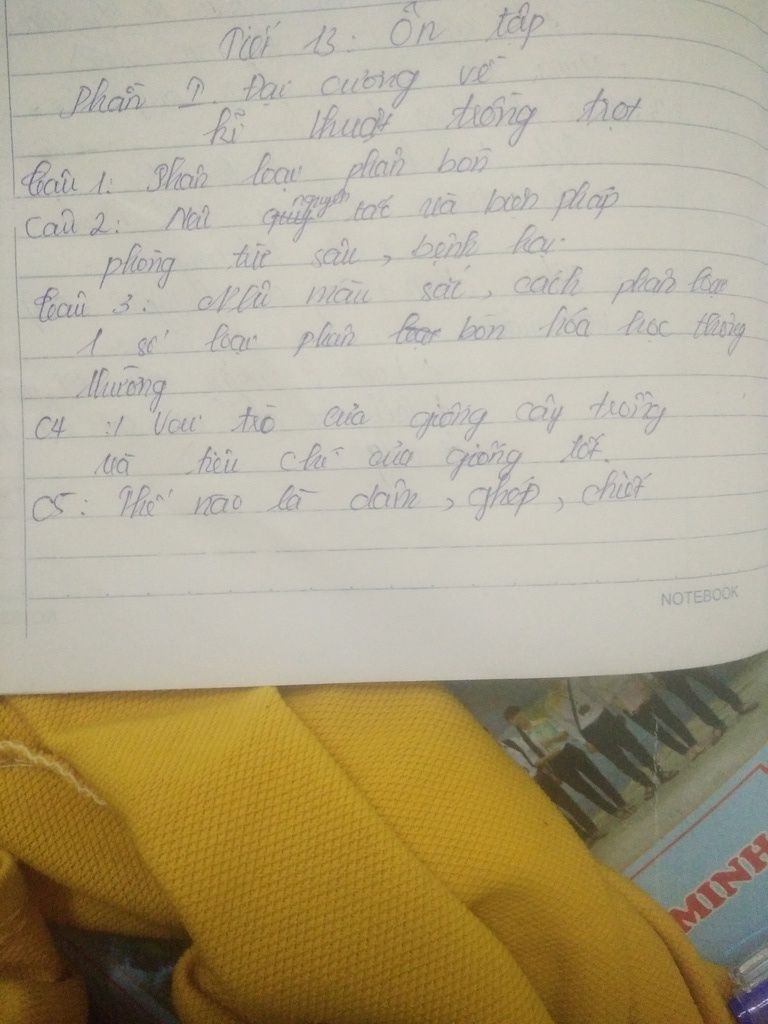 Tiết 13: Ôn tập
Phần I. Đại cương về
kĩ thuật trồng trọt
Câu 1: Phân loại phân bón
Câu 2: Nêu nguyên tắc và biện pháp
phòng trừ sâu, bệnh hại.
Câu 3: Nhìu màu sắc, cách phân loại
1 số loại phân bón hóa học thông
thường
C4 : Vai trò của giống cây trồng
và tiêu chí của giống tốt.
C5: Thế nào là dâm, ghép, chiết
NOTEBOOK
MINH